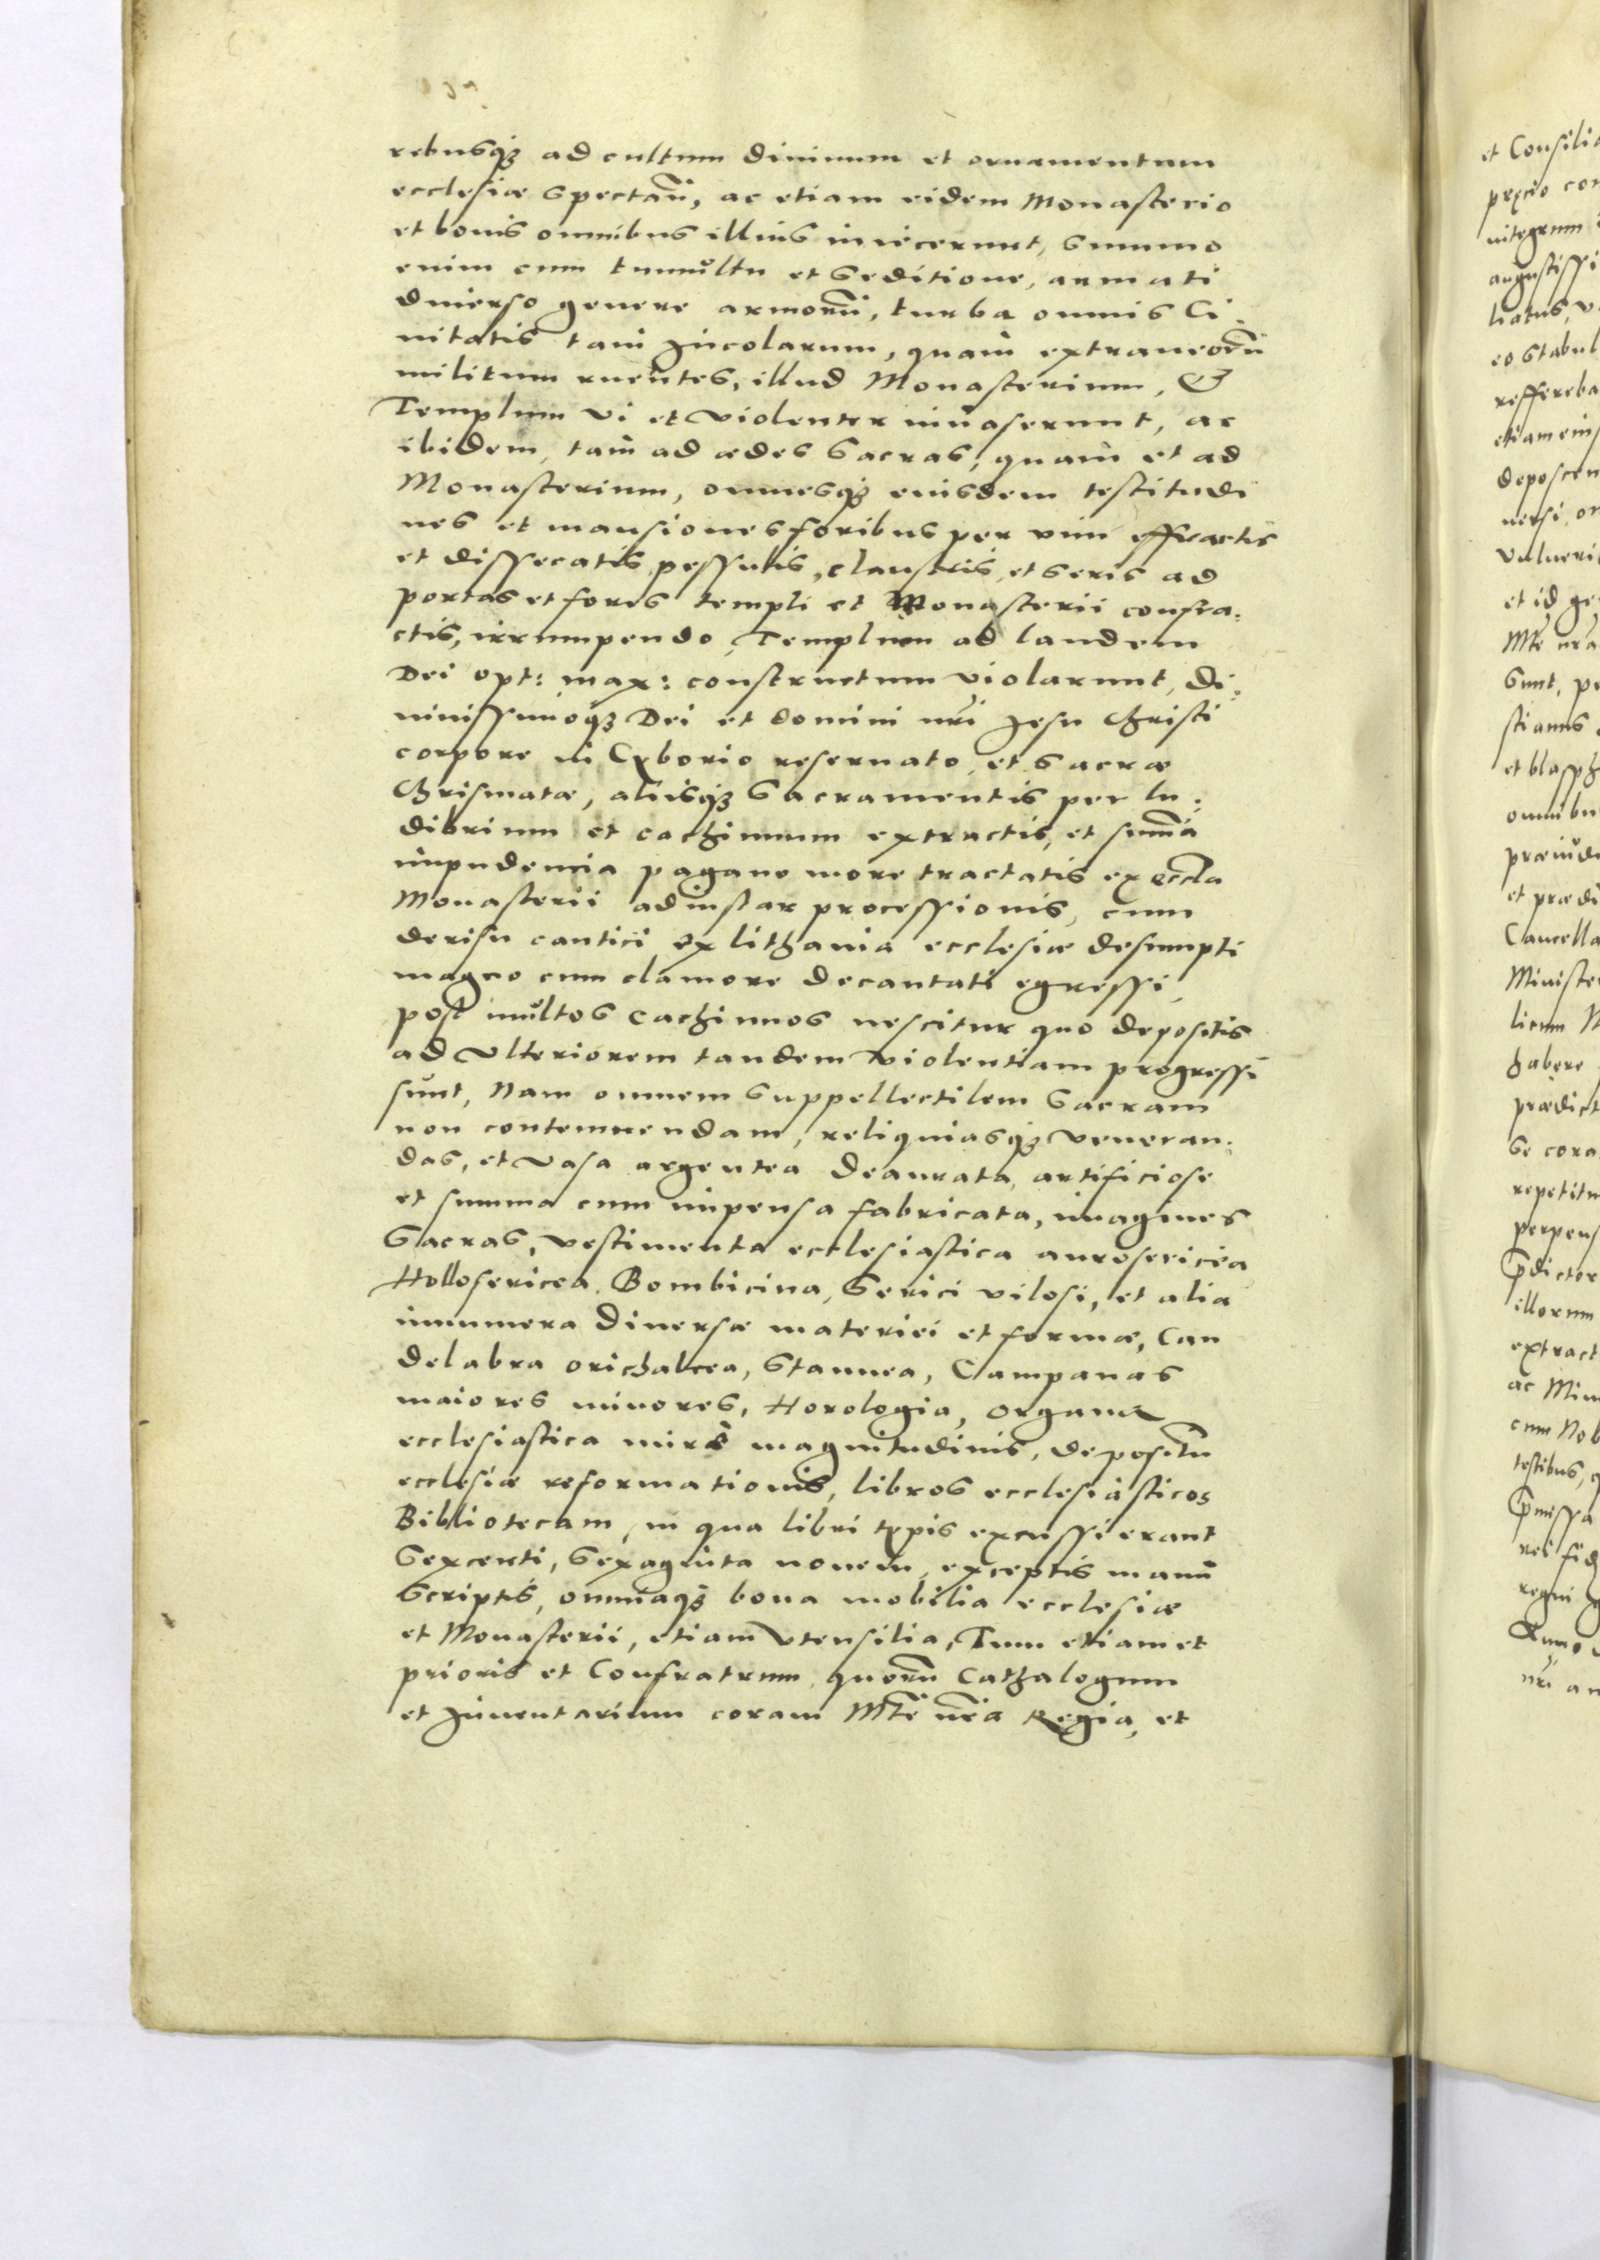 rebusq3 ad cultum diuinum et ornamentum
ecclesiæ spectañ, ac etiam eidem Monasterio
et bonis omnibus illius iniecerunt, summo
enim cum tumultu et seditione, armati
diuerso genere armorũ, turba omnis Ci-
uitatis tam Incolarum, quam extraneorũ
militum ruentes, illud Monasterium, &
Templum vi et violenter inuaserunt, ac
ibidem, tam ad ædes sacras, quam et ad
Monasterium, omnesq3 eiusdem testitudi
nes et mansiones foribus per vim effractis
et dissecatis pessulis, claustris et seris ad
portas et fores templi et Monasterii confra-
ctis, irrumpendo, Templum ad laudem
Dei opt: max: constructum violarunt, di-
uinissimoq3 Dei et domini nri Jesu Christi
corpore in Cyborio reseruato, et sacræ
Chrismatæ, aliisq3 Sacramentis per lu-
dibrium et cachinnum extractis, et sum̃a
impudencia pagano more tractatis ex eccla
Monasterii ad instar processionis, cum
derisu cantici ex lithania ecclesiæ desumpti
magno cum clamore decantati egressi,
post multos cachinnos nescitur quo depositis
ad vlteriorem tandem violentiam progressi
sunt, Nam omnem suppellectilem sacram
non contemnendam, reliquiasq3 veneran-
das, et vasa argentea deaurata, artificiose
et summa cum impensa fabricata, imagines
sacras, vestimenta ecclesiastica aurosericea
Hollosericea, Bombicina, Serici vilosi, et alia
innumera diuersæ materiei et formæ, Can
delabra orichalcea, Stannea, Campanas
maiores minores, Horologia, Organa
ecclesiastica miræ magnitudinis, depositũ
ecclesiæ reformationis, libros ecclesiasticos
Bibliotecam, in qua libri typis excussi erant
sexcenti, sexaginta nouem, exceptis manu
scriptis, omniaq3 bona mobilia ecclesiæ
et Monasterii, etiam vtensilia, Tum etiam et
prioris et Confratrum, quorũ Cathalogum
et Inuentarium coram Mte nra Regia, et